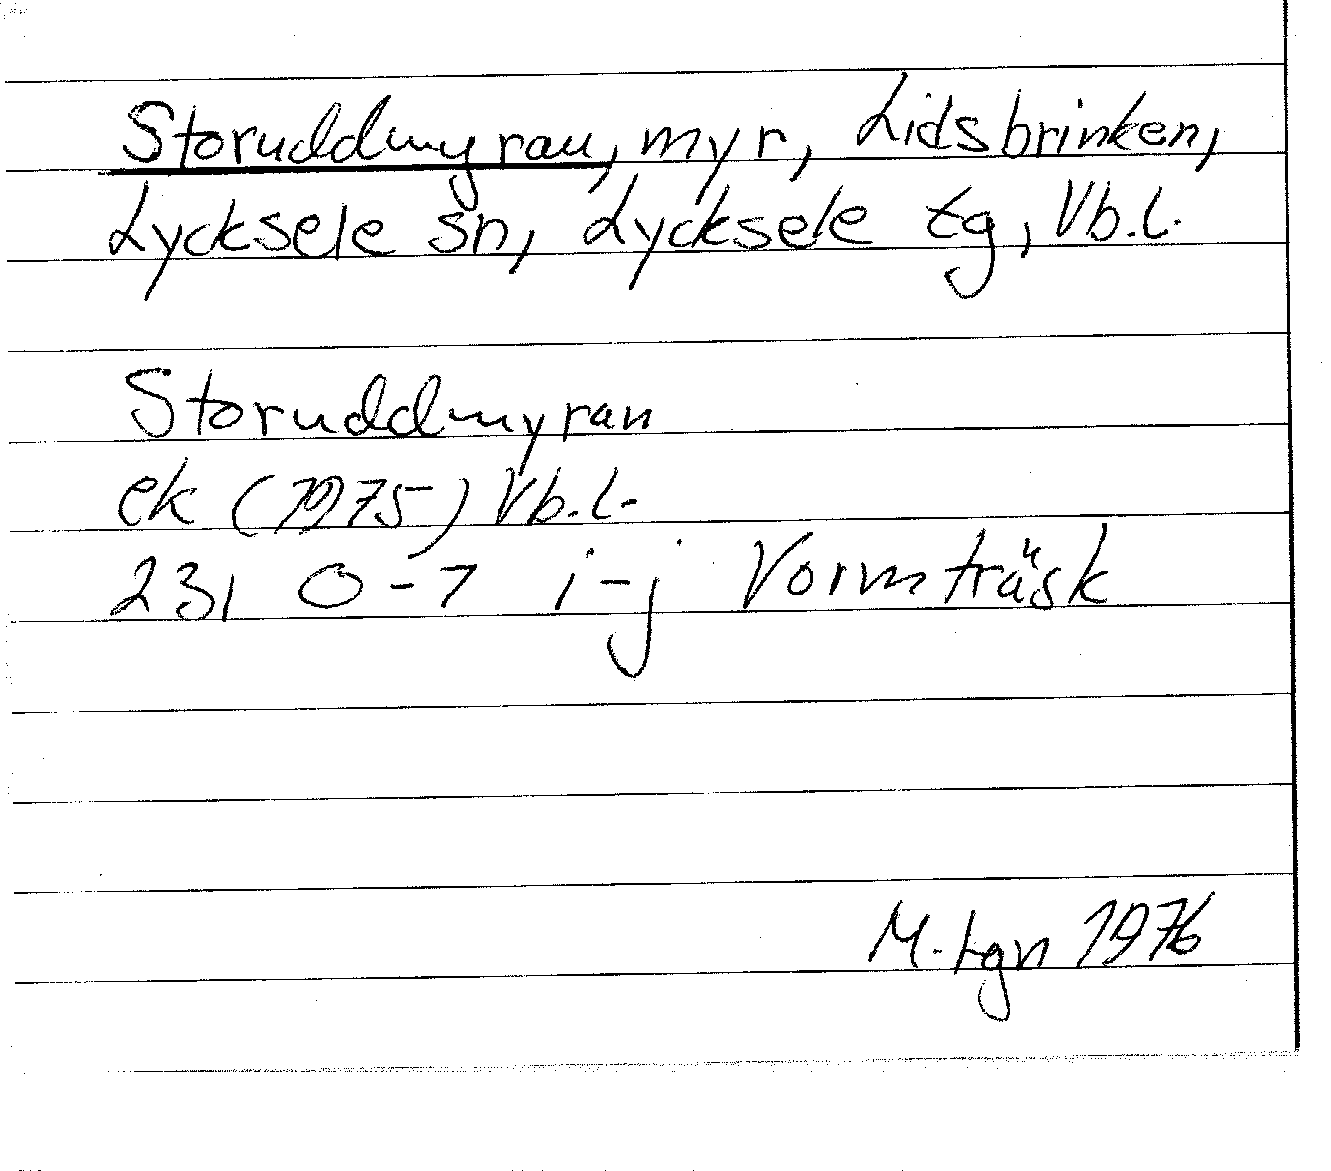 Storuddmyran, myr, Lidsbrinken,
Lycksele sn, Lycksele tg, Vb.l.
Storuddmyran
ek (1975) Vb.l.
23I 0-7 i-j Vormträsk
M. Lgn 1976